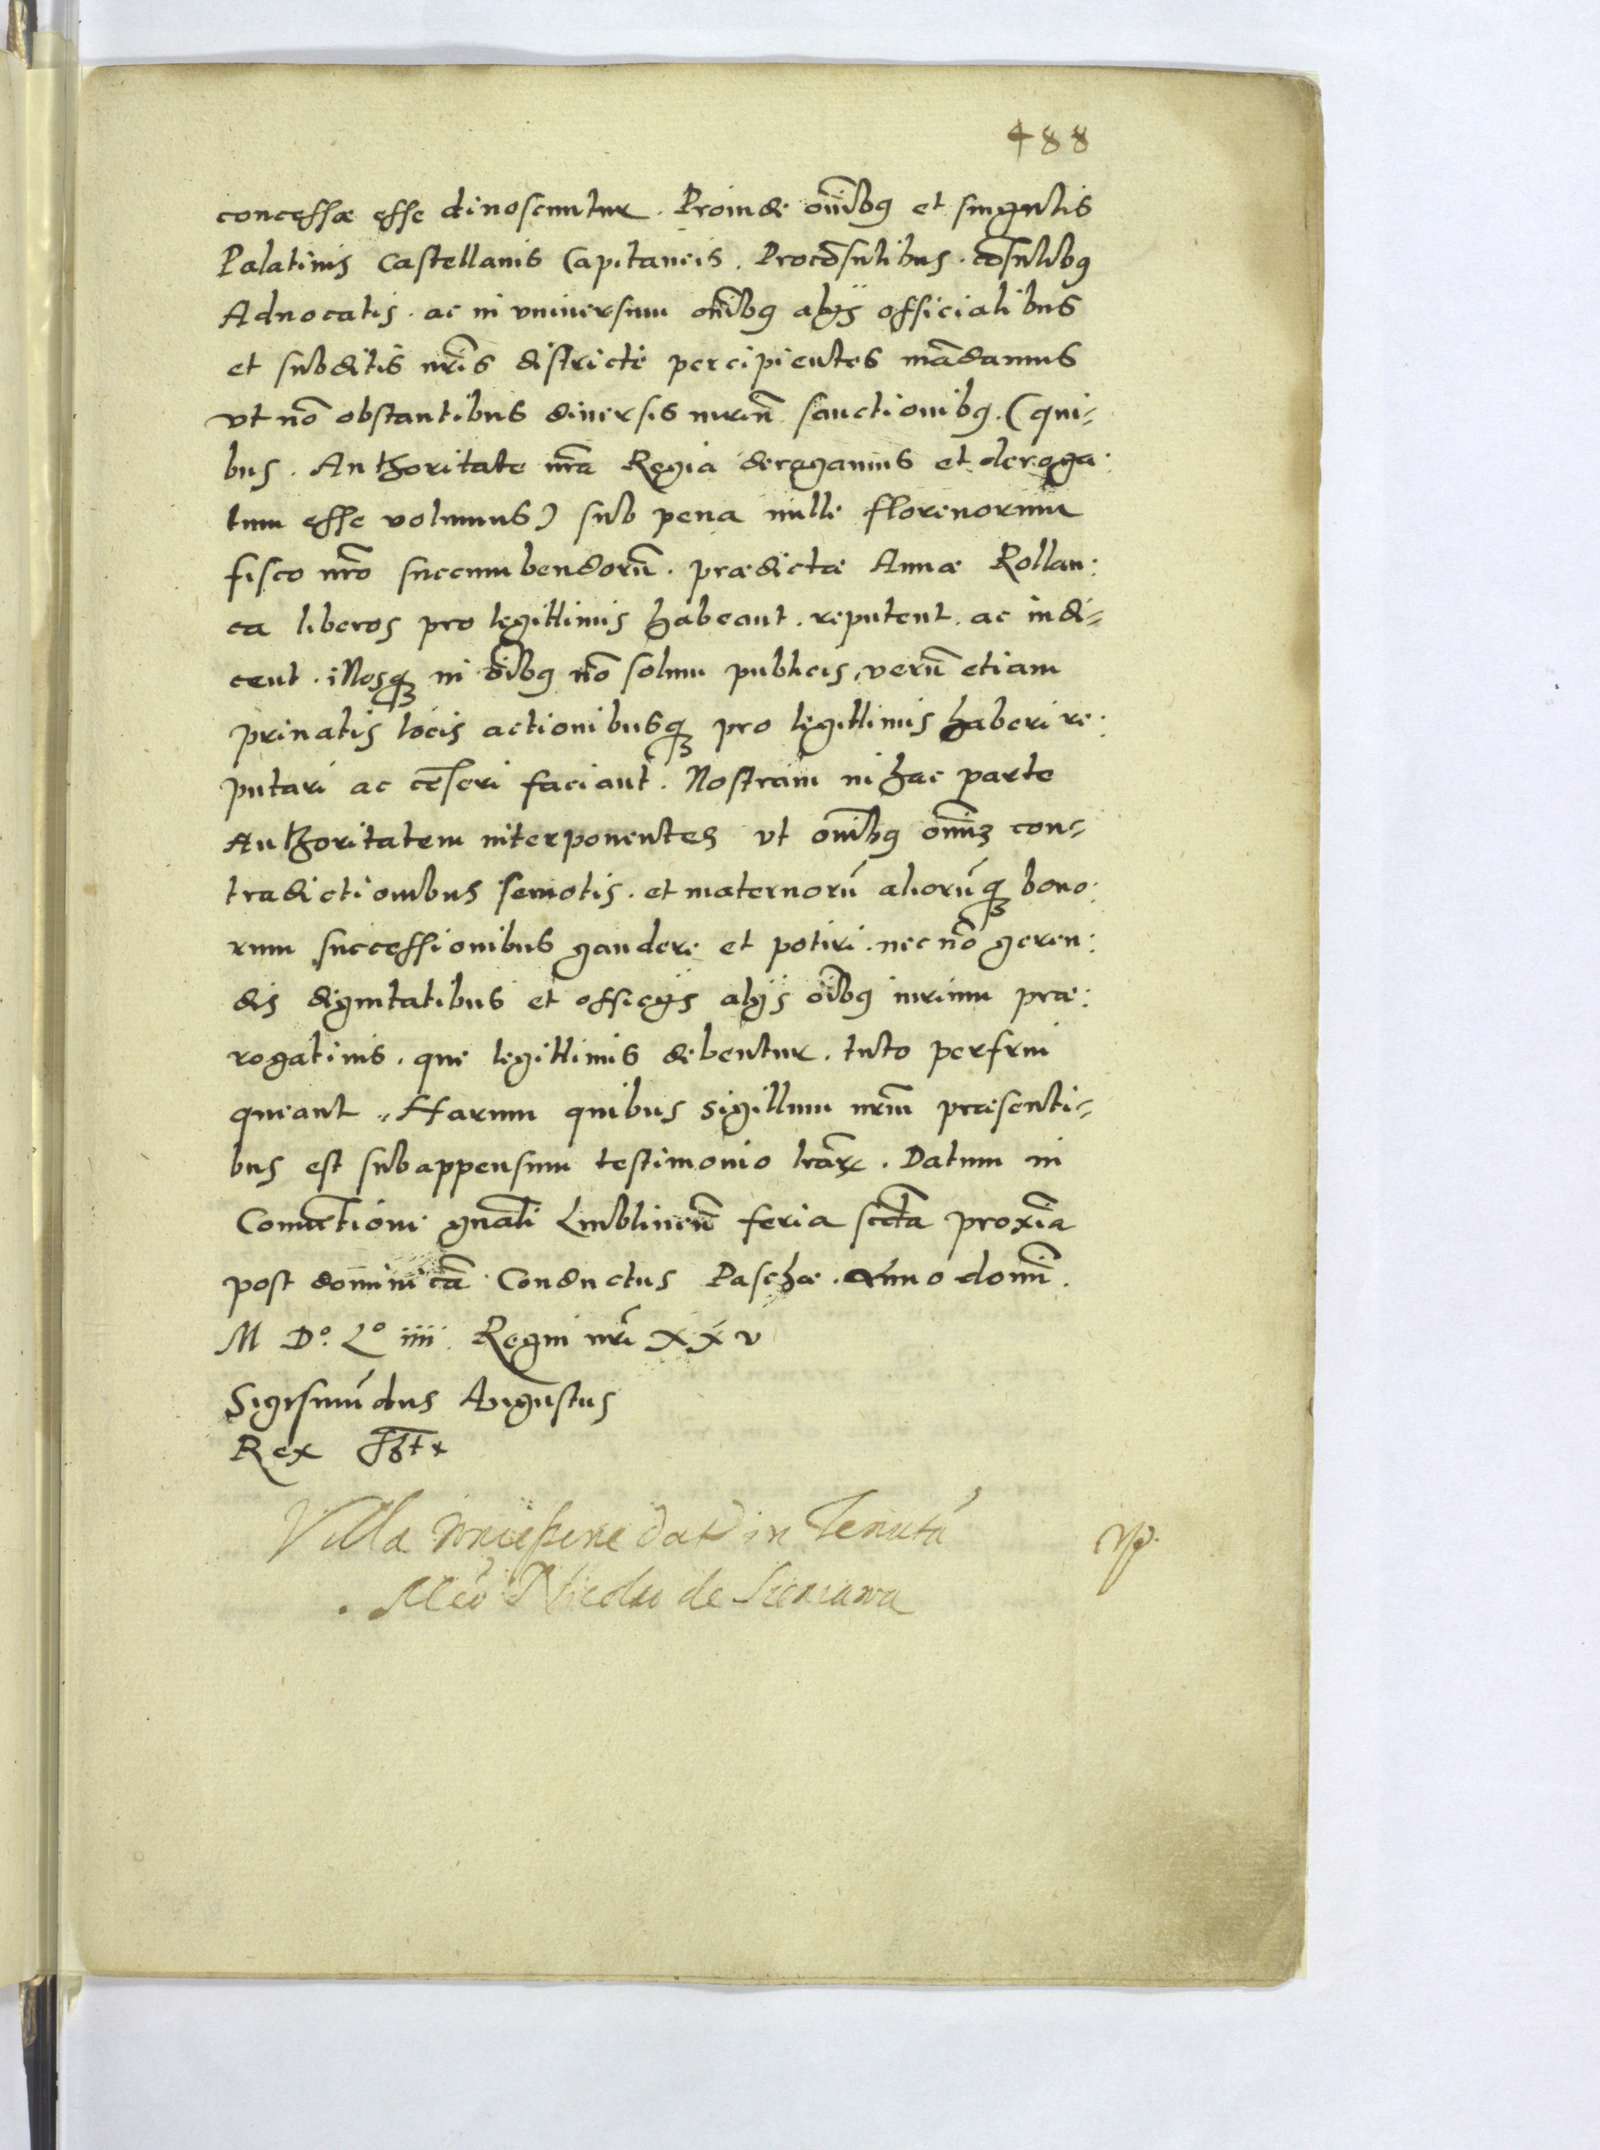 488
concessæ esse dinoscuntur. Proinde om̄ibus et singulis
Palatinis Castellanis Capitaneis. Procōsulibus. cōsulibus
Aduocatis. ac in vniuersum om̄ibus alijs officialibus
et subditis nr̄is districte percipientes mādamus
vt nō obstantibus diuersis iuriū sanctionibus. (qui-
bus. Authoritate nr̄a Regia derogamus et deroga:
tum esse volumus) sub pena mille florenorum
fisco nr̄o succumbendorū. prædictæ Annæ Rollan:
ca liberos pro legittimis habeant. reputent. ac indi-
cent. illosq in oībus nō solum publicis, verū etiam
priuatis locis actionibusq pro legittimis haberi re:
putari ac cēseri faciant. Nostram in hac parte
Authoritatem interponentes vt om̄ibus om̄iū con-
tradictionibus semotis. et maternorū aliorūq bono:
rum successionibus gaudere et potiri. nec nō geren:
dis dignitatibus et officijs alijs oībus iurium præ:
rogatiuis. que legittimis debentur. tuto perfrui
queant. Harum quibus sigillum nrm̄ præsenti-
bus est subappensum testimonio lrār. Datum in
Conuentione gnāli Lublinen̄ feria sexta proxīa
post dominicā Conductus Paschæ. Anno domi.
M D.o L.o iiii. Regni nr̄i XXV
Sigismūdus Augustus
Rex sst
Villa dat in Tenutā
Nicolao de Sieniawa